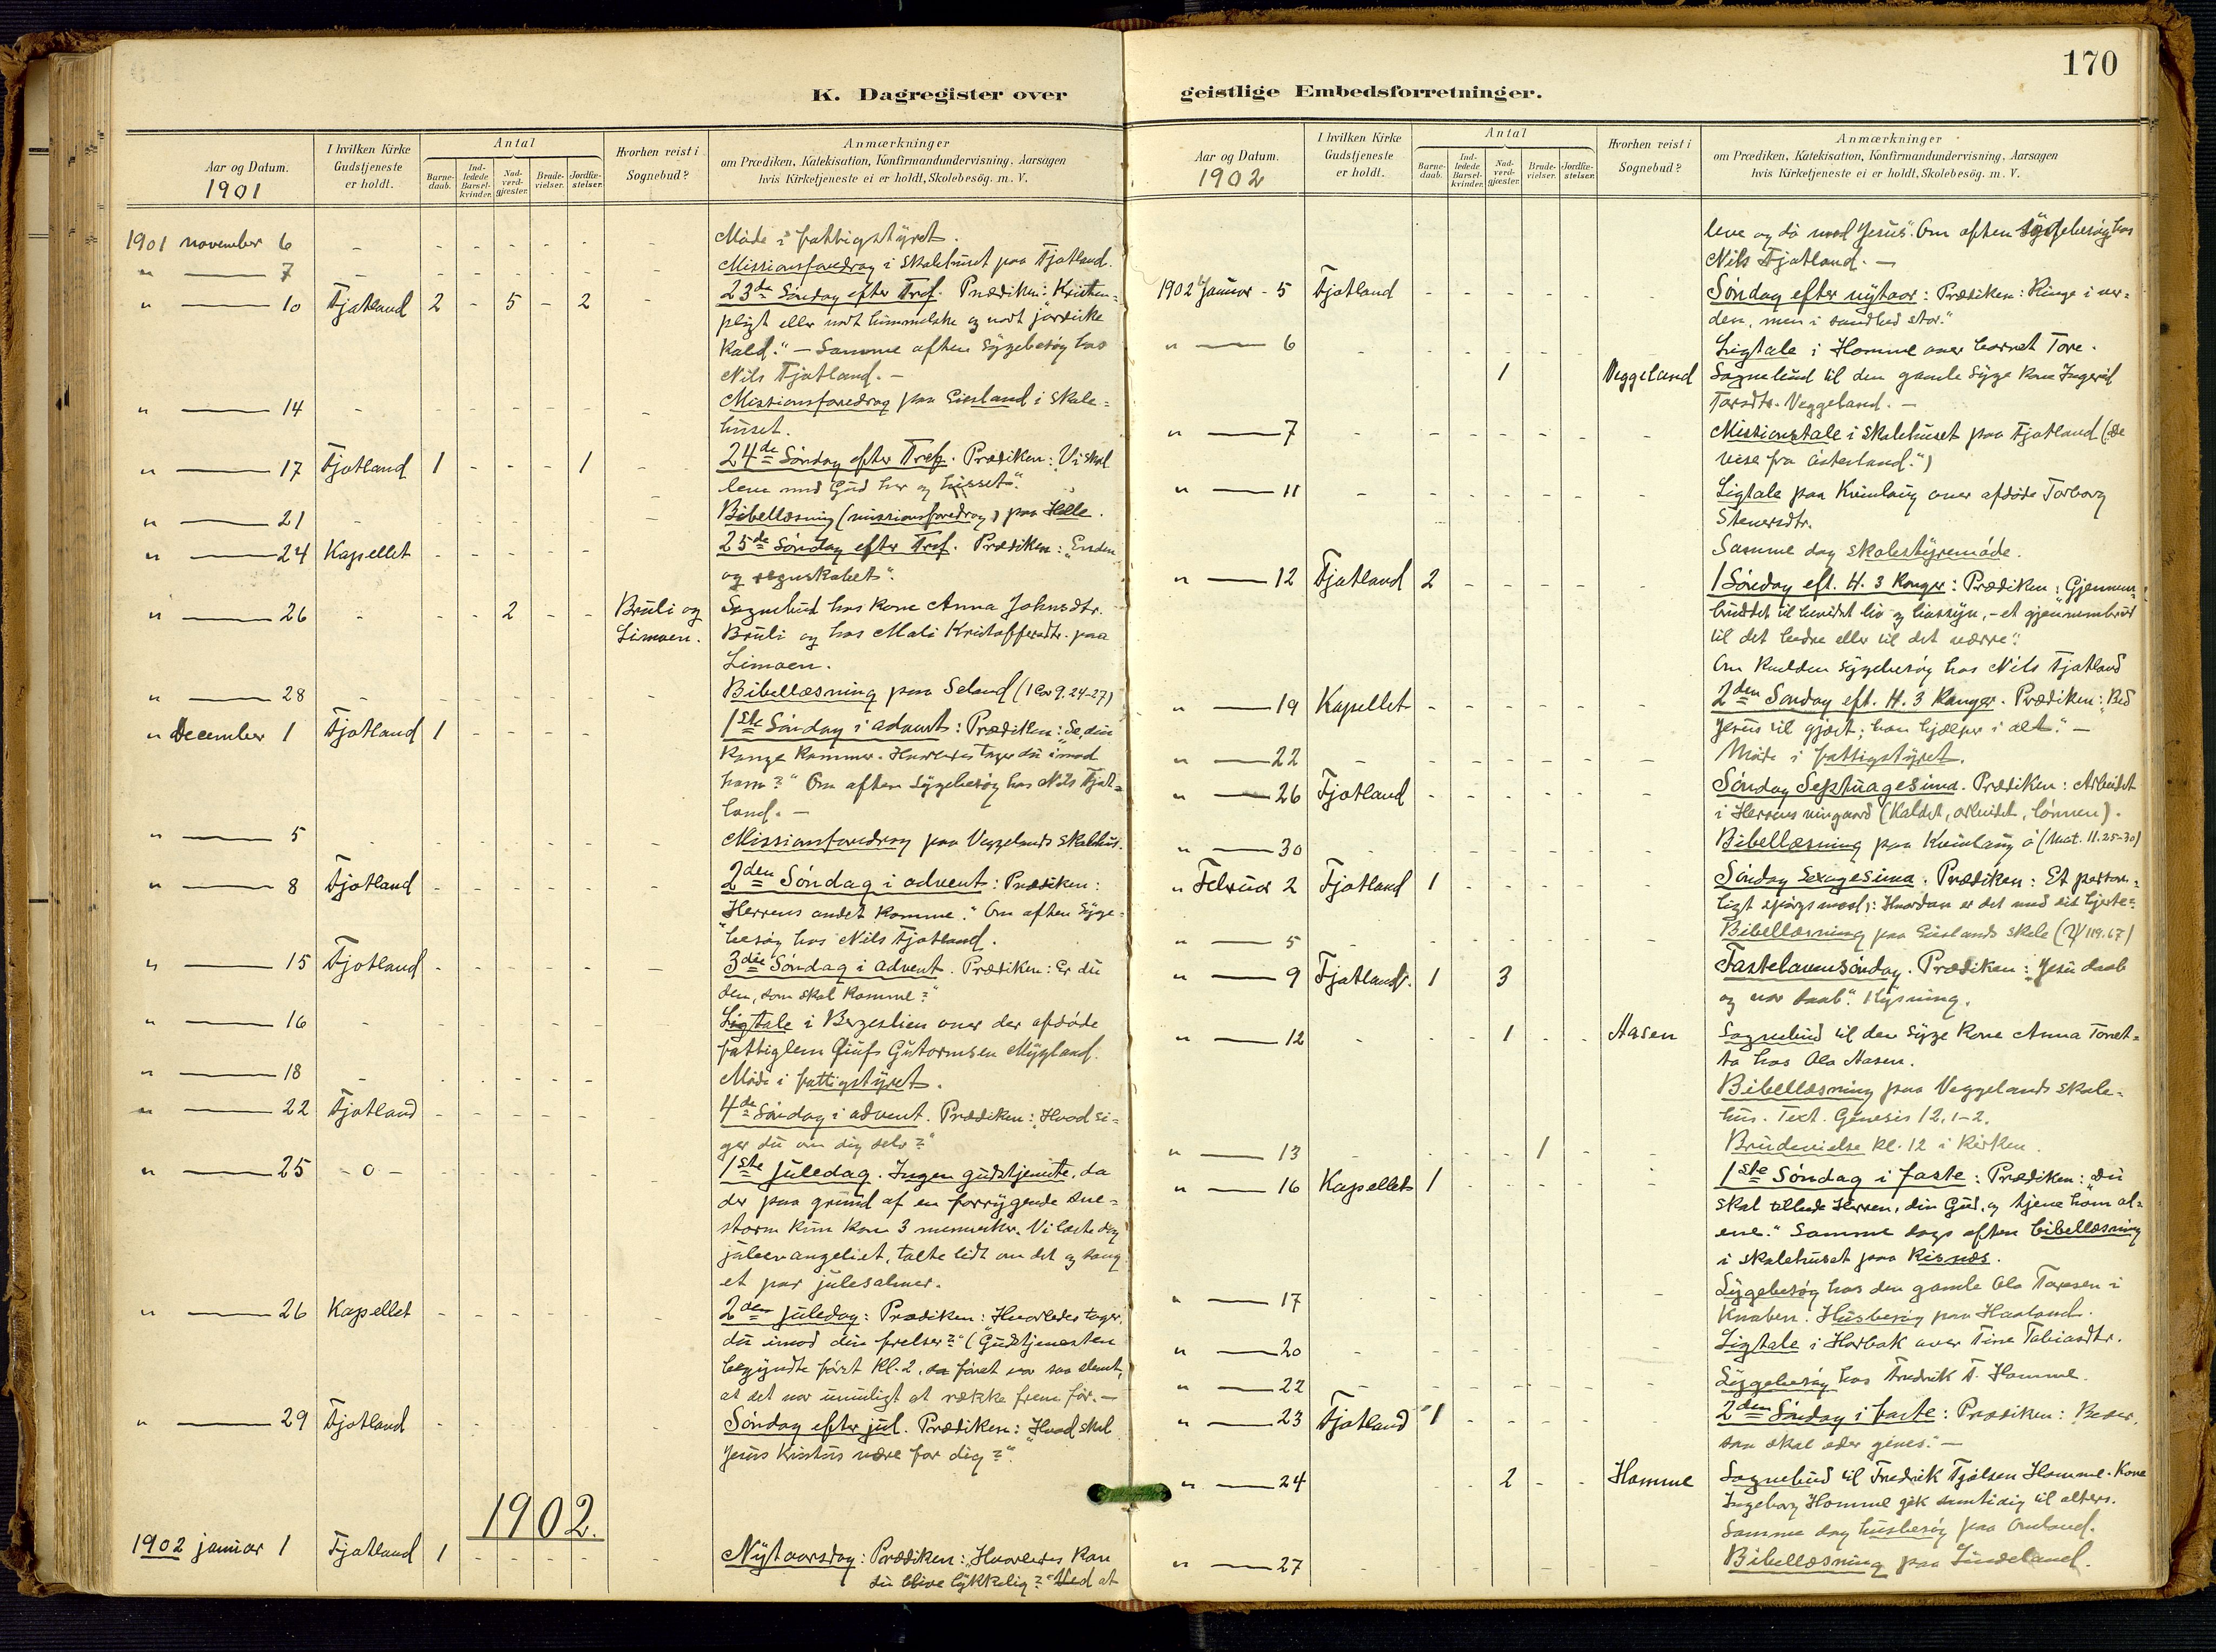 K. Dagregister over
Aar og Datum.
1901
I hvilken Kirke
Gudstjeneste
er holdt.
Antal
Barne-
daab.
Ind-
ledede
Barsel-
kvinder.
Nad-
verd-
gjæster.
Brude-
vielser.
Jordfæ-
stelser.
Hvorhen reist i
Sognebud?
Anmærkninger
om Prædiken, Katekisation, Konfirmandundervisning, Aarsagen
hvis Kirketjeneste ei er holdt, Skolebesøg. m. V.
1901 november 6 - - - - - - - Møde i fattigstyret.
" 7 - - - - - - Missionsforedrag i skolehuset paa Fjotland.
" 10 Fjotland 2 - 5 - 2 - 23de Søndag efter Tref. Prædiken: Kristen-
pligt eller vort himmelske og vort jordiske
kald." – Samme aften sygebesøg hos
Nils Fjotland. –
" 14 - - - - - - - Missionsforedrag paa Eiesland i skole-
huset.
" 17 Fjotland 1 - - - 1 - 24de Søndag efter Tref. Prædiken: Vi skal
leve med Gud her og hisset".
" 21 - - - - - - Bibellæsning (missionsforedrag) paa Helle.
" 24 Kapellet - - - - - 25de Søndag efter Tref. Prædiken: "Enden
og regnskabet".
" 26 - - - 2 - - Bruli og Sognebud hos kone Anna Johnsdtr.
Limoen. Bruli og hos Mali Kristoffersdtr. paa
Limoen.
" 28 - - - - - - - Bibellæsning paa Seland (1 Cor 9.24-27)
" December 1 Fjotland 1 - - - - 1ste Søndag i advent: Prædiken: "Se, din
konge kommer. Hvorledes tager du imod
ham?" Om aften sygebesøg hos Nils Fjot-
land. –
" 5 - - - - - - - Missionsforedrag paa Veggelands skolehus.
" 8 Fjotland - - - - - - 2den Søndag i advent: Prædiken:
Herrens andet komme." Om aften syge-
besøg hos Nils Fjotland.
" 15 Fjotland - - - - - - 3die Søndag i advent. Prædiken: Er du
den, som skal komme?"
" 16 - - - - - - Ligtale i Bergeslien over den afdøde
fattiglem Guttormsen Mygland.
" 18 - - - - - - Møde i fattigstyret.
" 22 Fjotland - - - - - - 4de Søndag i advent. Prædiken: Hvad si-
ger du om dig selv?"
" 25 - 0 - 1ste juledag. Ingen gudstjeneste, da
der paa grund af en forrygende sne-
storm kun kom 3 mennesker. Vi læste dog
juleevangeliet, talte lidt om det og sang
et par julesalmer.
" 26 Kapellet - - - - - - 2den juledag: Prædiken: Hvorledes tager
du imod din frelser?" (Gudstjenesten
begyndte først kl. 2, da føret var saa slemt,
at det var umuligt at række frem før. –
" 29 Fjotland - - - - - Søndag efter jul. Prædiken: "Hvad skal
Jesus Kristus være for dig?".
1902.
1902 januar 1 Fjotland 1 - - - - - Nytaarsdag: Prædiken: "Hvorledes kan
du blive lykkelig?" Ved at
170
geistlige Embedsforretninger.
Aar og Datum.
1902
I hvilken Kirke
Gudstjeneste
er holdt.
Antal
Barne-
daab.
Ind-
ledede
Barsel-
kvinder.
Nad-
verd-
gjæster.
Brude-
vielser.
Jordfæ-
stelser.
Hvorhen reist i
Sognebud?
Anmærkninger
om Prædiken, Katekisation, Konfirmandundervisning, Aarsagen
hvis Kirketjeneste ei er holdt, Skolebesøg. m. V.
leve og dø med Jesus". Om aften sygebesøg hos
Nils Fjotland. –
1902 Januar - 5 Fjotland - - - - - - Søndag efter nytaar: Prædiken: Ringe i ver-
den, men i sandhed stor."
" 6 - - - - - Ligtale i Homme over barnet Tore.
1 Veggeland Sognebud til den gamle syge kone Ingerid
Tarsdtr. Veggeland. –
" 7 - - - - - - - Missionstale i skolehuset paa Fjotland (De
vise fra østerland.")
" 11 - - - - - - - Ligtale paa Kvinlaug over afdøde Torborg
Stenersdtr.
Samme dag skolestyremøde.
" 12 Fjotland 2 - - - - - 1 Søndag eft. H. 3 Konger: Prædiken: Gjennem-
bruddet til bevidst liv og livssyn, – et gjennembrud
til det bedre eller til det værre".
Om kvelden sygebesøg hos Nils Fjotland
" 19 Kapellet - - - - - - 2den Søndag eft. H. 3 Konger. Prædiken: "Bed
Jesus til gjæst; han hjælper i alt." –
" 22 - - - - - - - Møde i fattigstyret.
" 26 Fjotland - - - - - - Søndag Septuagesima. Prædiken: Arbeidet
i Herrens vingaard (kaldet, arbeidet, lønnen).
" 30 - - - - - - Bibellæsning paa Kvinlaug ø (Mat. 11.25-30)
" Februar 2 Fjotland 1 - - - - - Søndag Sexagesima. Prædiken: Et person-
ligt spørgsmaal: Hvordan er det med dit hjerte?
" 5 - - - - - - Bibellæsning paa Eieslands skole (Ψ 119.67)
" 9 Fjotland. 1 - 3 Fastelavensøndag. Prædiken: "Jesu daab
og vor daab". Lysning.
" 12 - - - 1 - - Aasen Sognebud til den syge kone Anna Tonet-
ta hos Ola Aasen.
Bibellæsning paa Veggelands skole-
hus. Text. Genesis 12.1-2.
" 13 - - - - 1 - - Brudevielse kl. 12 i kirken.
" 16 Kapellet 1 - - - - - 1ste Søndag i faste: Prædiken: "Du
skal tilbede Herren, din Gud, og tjene ham al-
ene." Samme dags aften bibellæsning
i skolehuset paa Risnes.
" 17 - - - - - - Sygebesøg hos den gamle Ola Taresen i
Knaben. Husbesøg paa Haaland.
" 20 - - - - - - Ligtale i Horbak over Tine Tobiasdtr.
" 22 - - - - - - Sygebesøg hos Fredrik T. Homme.
" 23 Fjotland 1 - - - - - 2den Søndag i faste: Prædiken: Beder,
saa skal eder gives. –
" 24 - - 2 - - Homme Sognebud til Fredrik Tjølsen Homme. Kone
Ingeborg Homme gik samtidig til alters.
Samme dag husbesøg paa Omland.
" 27 - - - - - - Bibellæsning paa Lindeland.